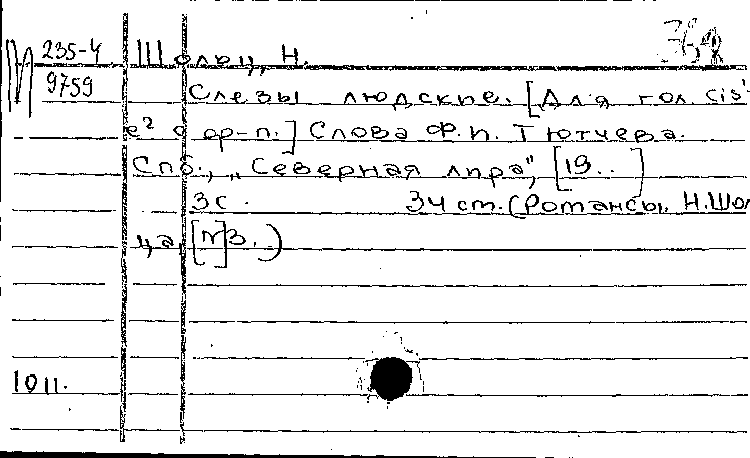 М 235-4 Шольц, Н.
9759 Слезы людские. [Для гол. cis'
e² с ф-п.] Слова Ф.И. Тютчева.
Спб., „Северная лира", [19..]
3 с. 34 см. (Романсы. Н. Шол
ца, [№] 3.)
1011.